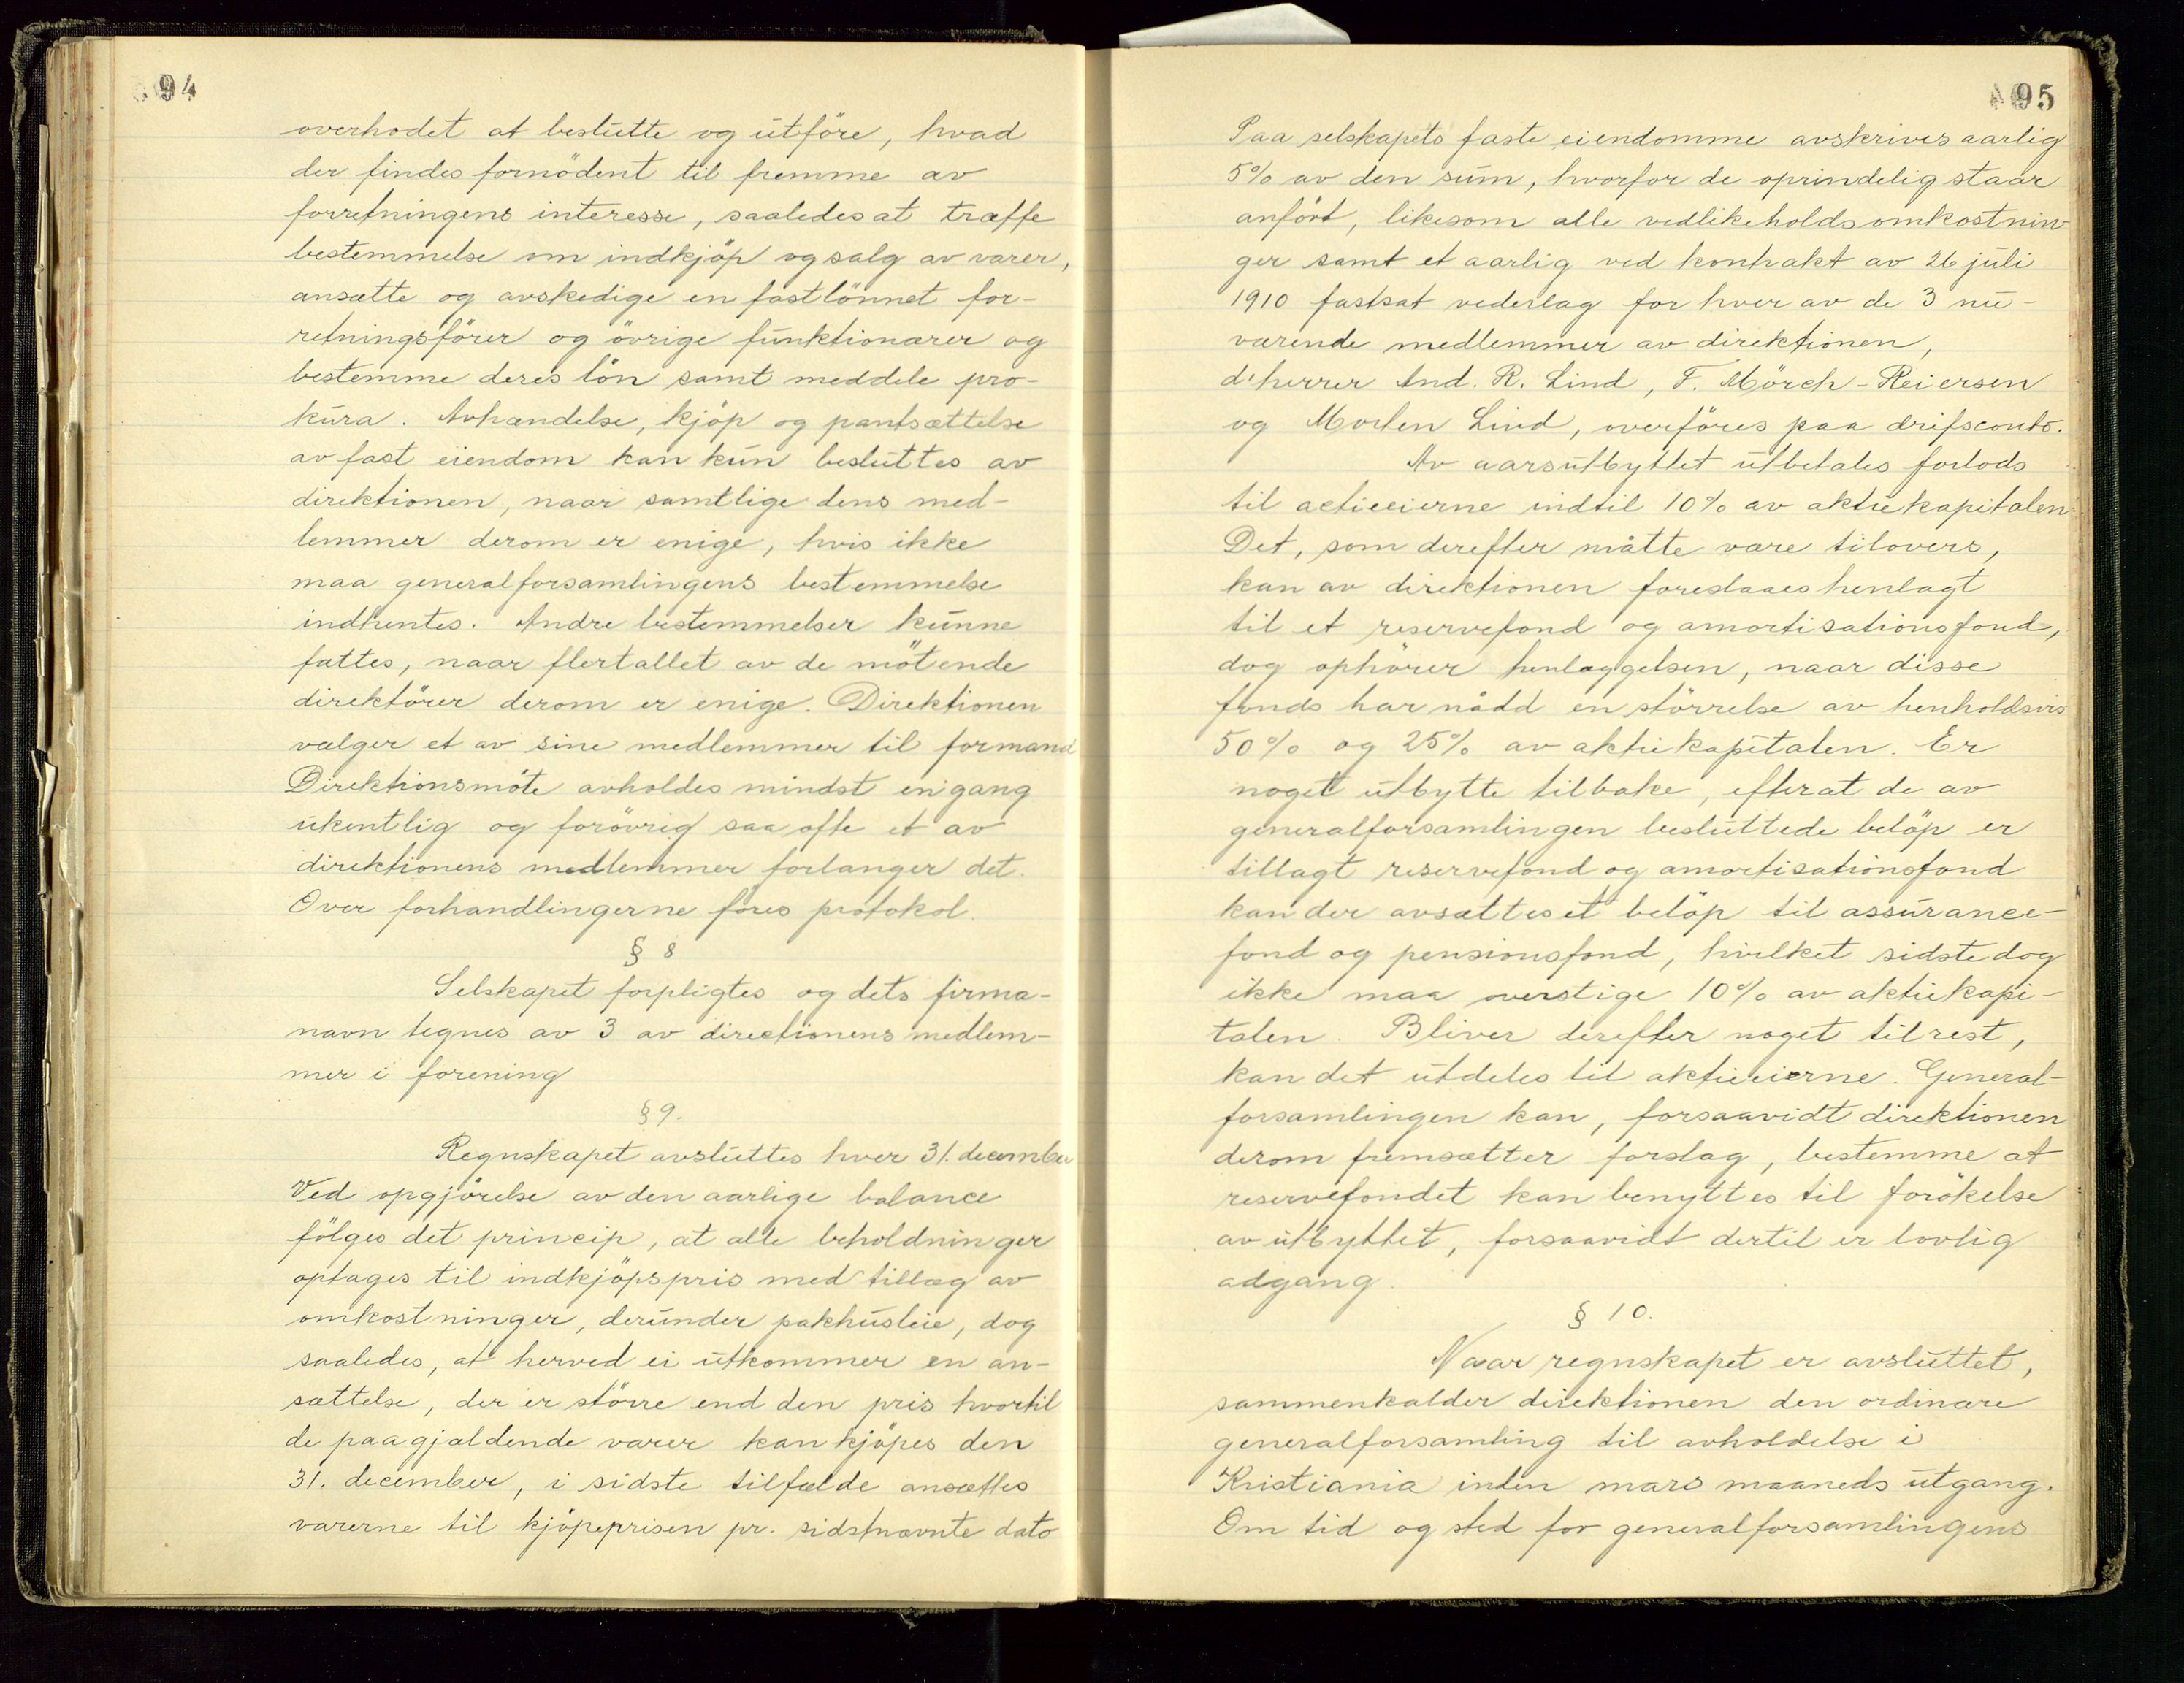 94
overhodet at beslutte og utföre, hvad
der findes fornödent til fremme av
forretningens interesse, saaledes at træffe
bestemmelse om indkjöp og salg av varer,
ansætte og avskedige en fastlönnet for-
retningsförer og övrige funktionærer og
bestemme deres lön samt meddele pro-
kura. Avhændelse, kjöp og pantsættelse
av fast eiendom kan kun besluttes av
direktionen, naar samtlige dens med-
lemmer derom er enige, hvis ikke
maa generalforsamlingens bestemmelse
indhentes. Andre bestemmelser kunne
fattes, naar flertallet av de mötende
direktörer derom er enige. Direktionen
vælger et av sine medlemmer til formand
Direktionsmöte avholdes mindst engang
ukentlig og forövrig saa ofte et av
direktionens medlemmer forlanger det.
Over forhandlingerne föres protokol.
§ 8
Selskapet forpligtes og dets firma-
navn tegnes av 3 av directionens medlem-
mer i forening
§ 9.
Regnskapet avsluttes hver 31. december
Ved opgjörelse av den aarlige balance
fölges det princip, at alle beholdninger
optages til indkjöpspris med tillæg av
omkostninger, derunder pakhusleie, dog
saaledes, at herved ei utkommer en an-
sættelse, der er större end den pris hvortil
de paagjældende varer kan kjöpes den
31. december, i sidste tilfælde ansættes
varerne til kjöpeprisen pr. sidstnævnte dato
95
Paa selskapets faste eiendomme avskrives aarlig
5% av den sum, hvorfor de oprindelig staar
anfört, likesom alle vedlikeholdsomkostnin-
ger samt et aarlig ved kontrakt av 26 juli
1910 fastsat vederlag for hver av de 3 nu-
værende medlemmer av direktionen,
d'herrer And. R. Lind, F. Mörch-Reiersen
og Morten Lind, overföres paa drifsconto.
Av aarsutbyttet utbetales forlods
til actieeierne indtil 10% av aktiekapitalen.
Det, som derefter måtte være tilovers,
kan av direktionen foreslaaes henlagt
til et reservefond og amortisationsfond,
dog ophörer henlæggelsen, naar disse
fonds har nådd en störrelse av henholdsvis
50% og 25% av aktiekapitalen. Er
noget utbytte tilbake, efterat de av
generalforsamlingen besluttede belöp er
tillagt reservefond og amortisationsfond
kan der avsættes et belöp til assurance-
fond og pensionsfond, hvilket sidste dog
ikke maa overstige 10% av aktiekapi-
talen. Bliver derefter noget tilrest,
kan det utdeles til aktieeierne. General-
forsamlingen kan, forsaavidt direktionen
derom fremsætter forslag, bestemme at
reservefondet kan benyttes til forökelse
av utbyttet, forsaavidt dertil er lovlig
adgang.
§ 10.
Naar regnskapet er avsluttet,
sammenkalder direktionen den ordinære
generalforsamling til avholdelse i
Kristiania inden mars maaneds utgang.
Om tid og sted for generalforsamlingens